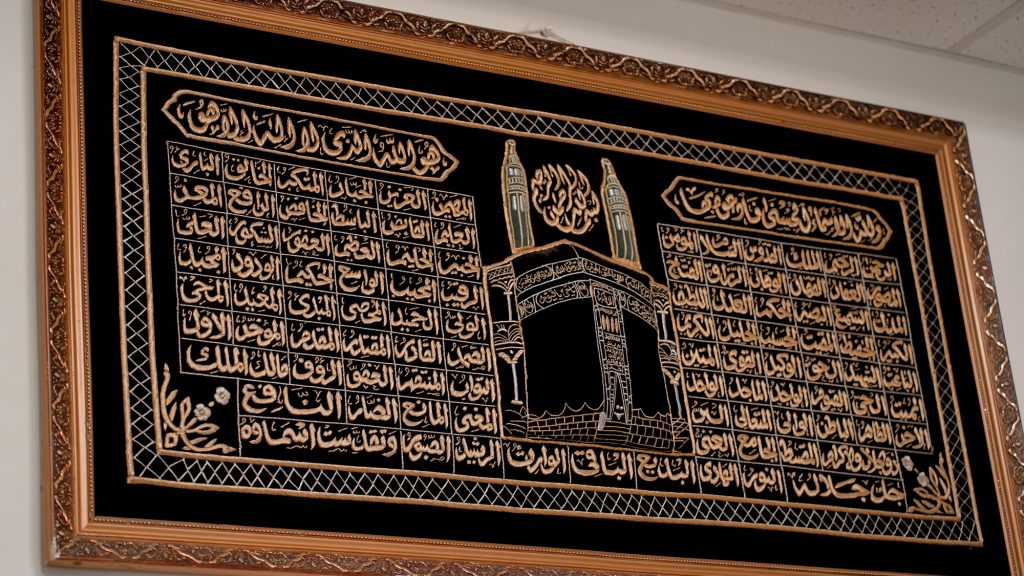 بسم الله الرحمن الرحيم
ولله الأسماء الحسنى فادعوه بها
هو الله الذي لا إله إلا هو
الرحمن الرحيم الملك القدوس السلام المؤمن المهيمن العزيز الجبار المتكبر الخالق البارئ
المصور الغفار القهار الوهاب الرزاق الفتاح العليم القابض الباسط الخافض الرافع المعز
المذل السميع البصير الحكم العدل اللطيف الخبير الحليم العظيم الغفور الشكور العلي
الكبير الحفيظ المقيت الحسيب الجليل الكريم الرقيب المجيب الواسع الحكيم الودود المجيد
الباعث الشهيد الحق الوكيل القوي المتين الولي الحميد المحصي المبدئ المعيد المحيي
المميت الحي القيوم الواجد الماجد الواحد الصمد القادر المقتدر المقدم المؤخر الأول
الآخر الظاهر الباطن الوالي المتعالي البر التواب المنتقم العفو الرؤف مالك الملك
ذو الجلال والإكرام المقسط الجامع الغني المغني المانع الضار النافع
جل جلاله النور الهادي البديع الباقي الوارث الرشيد الصبور وتقدست اسماؤه